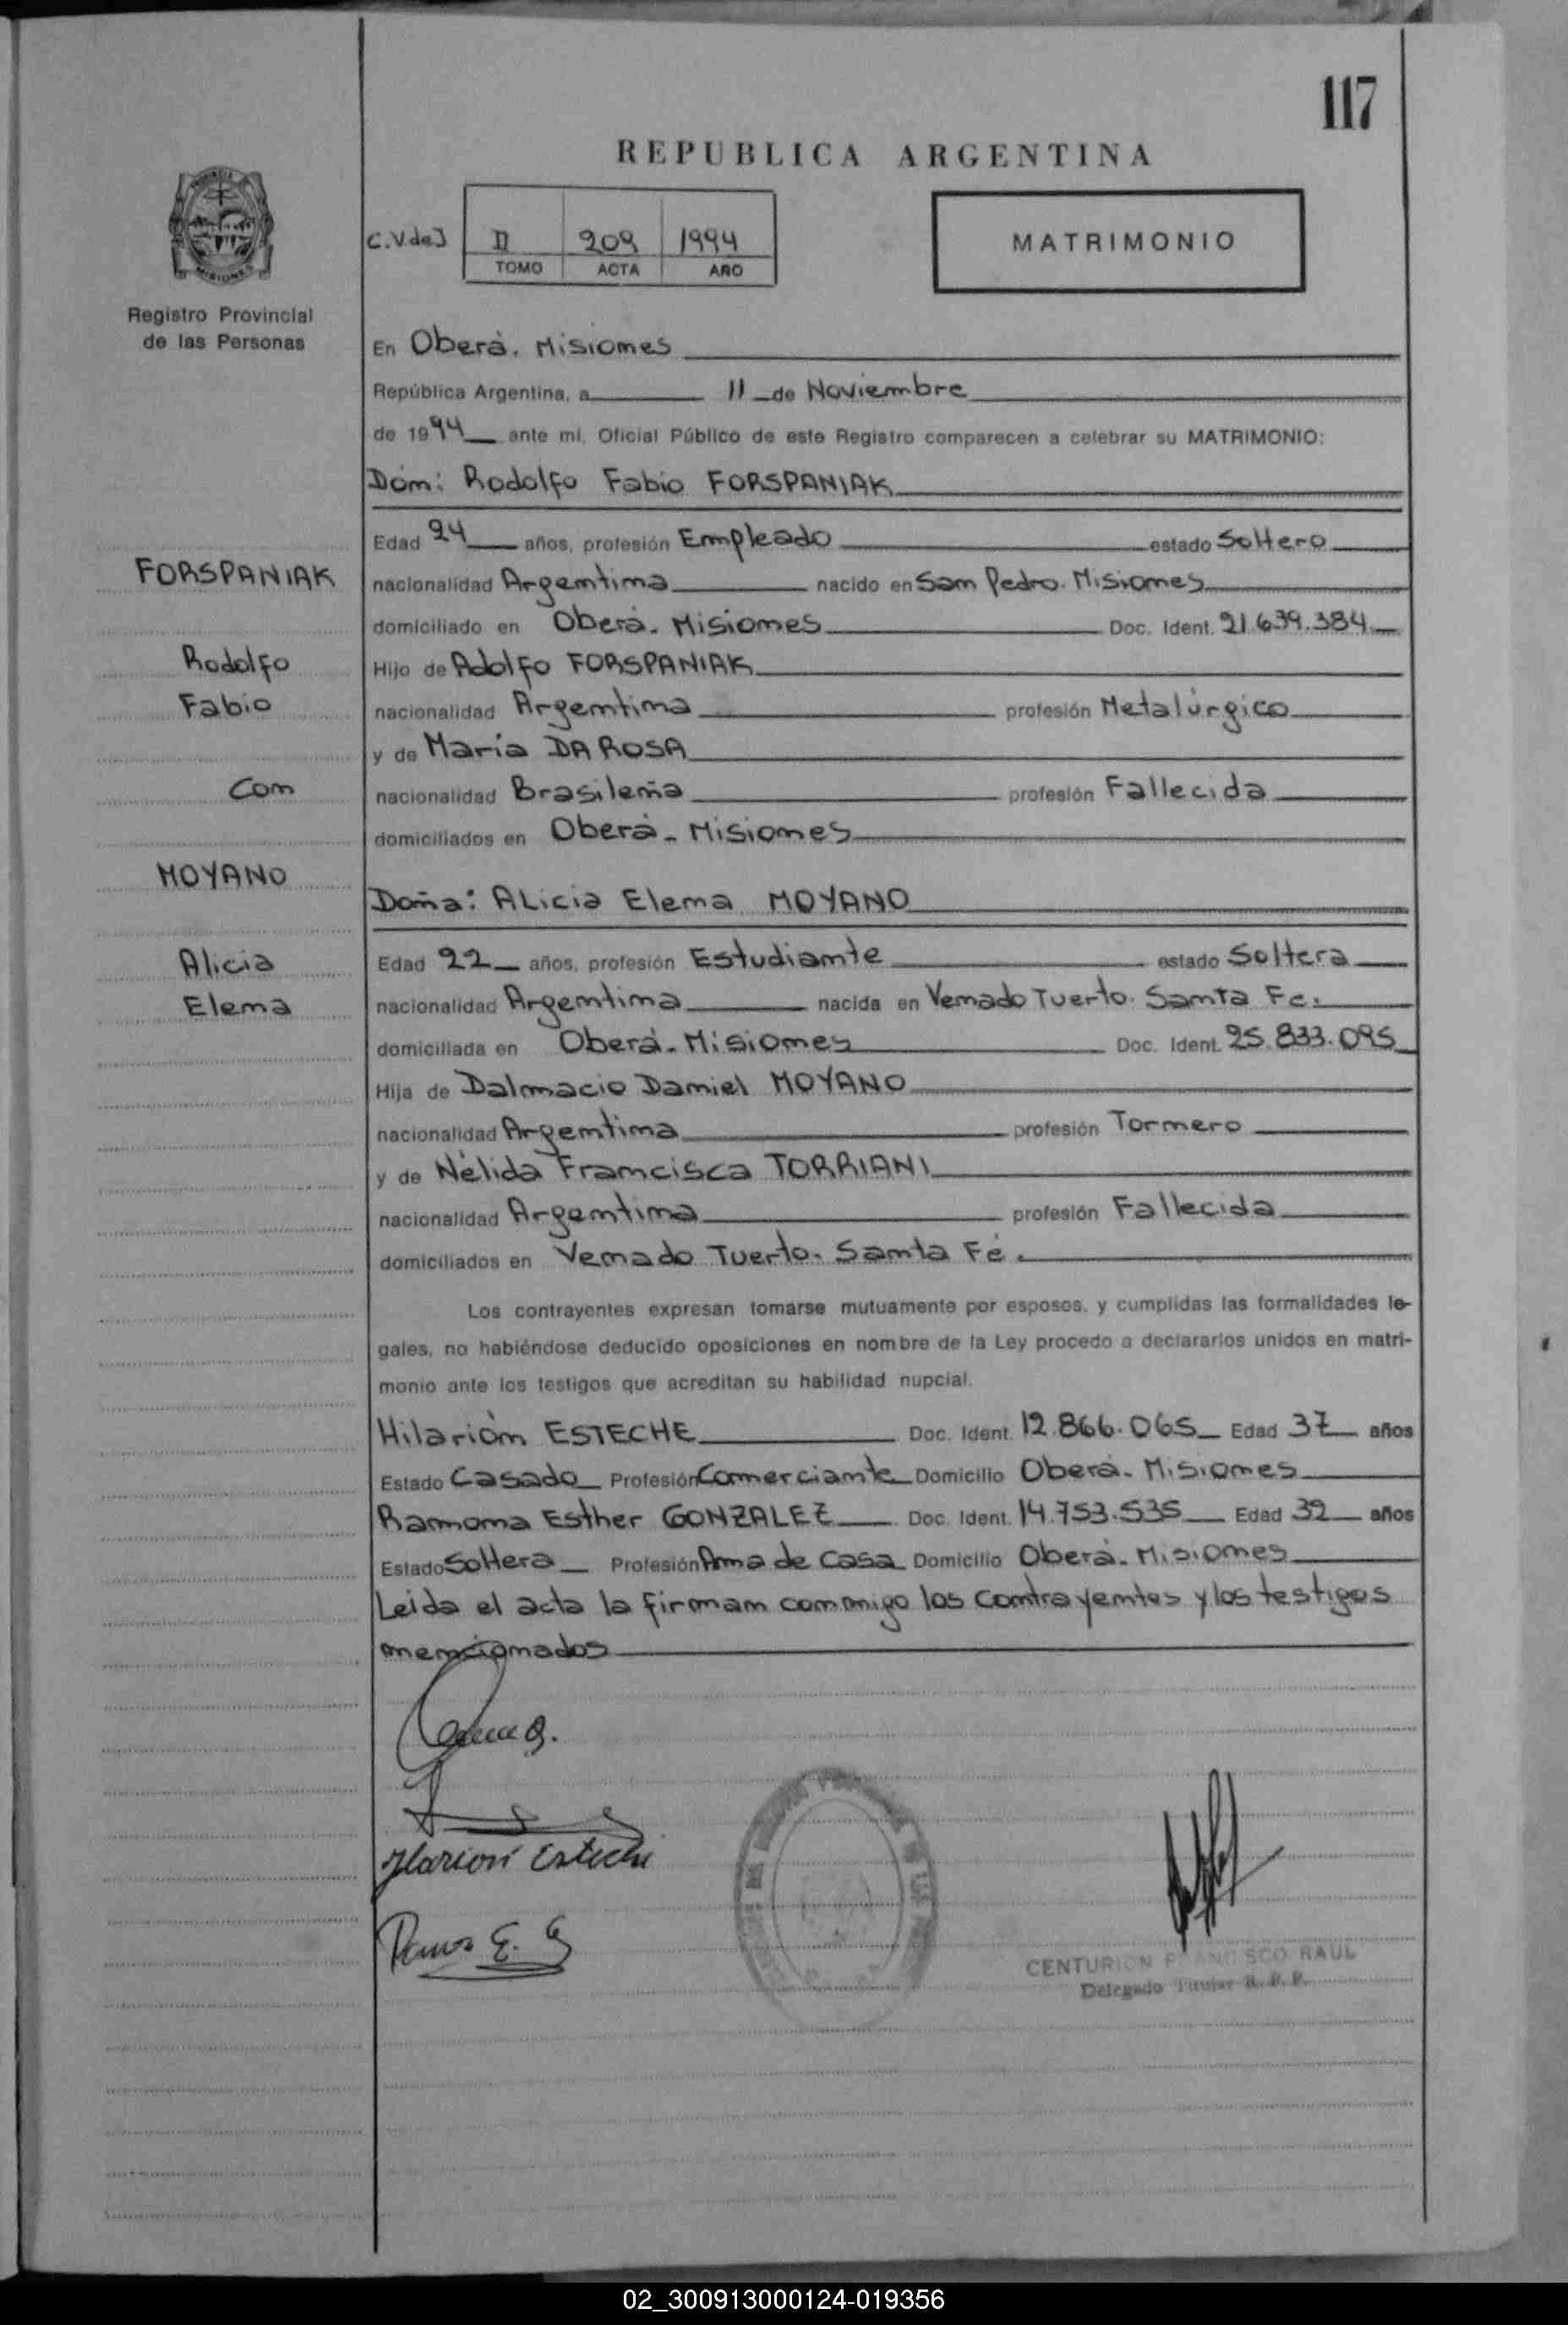 117
REPUBLICA ARGENTINA
C.V.deJ II 209 1994
TOMO ACTA AÑO
MATRIMONIO
Registro Provincial
de las Personas
En Oberá. Misiones
República Argentina, a 11 de Noviembre
de 1994 ante mí, Oficial Público de este Registro comparecen a celebrar su MATRIMONIO:
Don: Rodolfo Fabio FORSPANIAK
Edad 24 años, profesión Empleado estado Soltero
FORSPANIAK
nacionalidad Argentina nacido en San Pedro. Misiones
domiciliado en Oberá. Misiones Doc. Ident. 21.639.384
Rodolfo
Hijo de Adolfo FORSPANIAK
Fabio
nacionalidad Argentina profesión Metalúrgico
y de María DA ROSA
Con
nacionalidad Brasileña profesión Fallecida
domiciliados en Oberá. Misiones
MOYANO
Doña: Alicia Elena MOYANO
Alicia
Edad 22 años, profesión Estudiante estado Soltera
Elena
nacionalidad Argentina nacida en Venado Tuerto. Santa Fe.
domiciliada en Oberá. Misiones Doc. Ident. 25.833.095
Hija de Dalmacio Daniel MOYANO
nacionalidad Argentina profesión Tornero
y de Nélida Francisca TORRIANI
nacionalidad Argentina profesión Fallecida
domiciliados en Venado Tuerto. Santa Fé.
Los contrayentes expresan tomarse mutuamente por esposos, y cumplidas las formalidades le-
gales, no habiéndose deducido oposiciones en nombre de la Ley procedo a declararlos unidos en matri-
monio ante los testigos que acreditan su habilidad nupcial.
Hilarión ESTECHE Doc. Ident. 12.866.065 Edad 37 años
Estado Casado Profesión Comerciante Domicilio Oberá. Misiones
Ramona Esther GONZALEZ Doc. Ident. 14.753.535 Edad 32 años
Estado Soltera Profesión Ama de Casa Domicilio Oberá. Misiones
Leída el acta la firman conmigo los contrayentes y los testigos
mencionados
Hilarión Esteche
CENTURION FRANCISCO RAUL
Delegado Titular R. P. P.
02_300913000124-019356